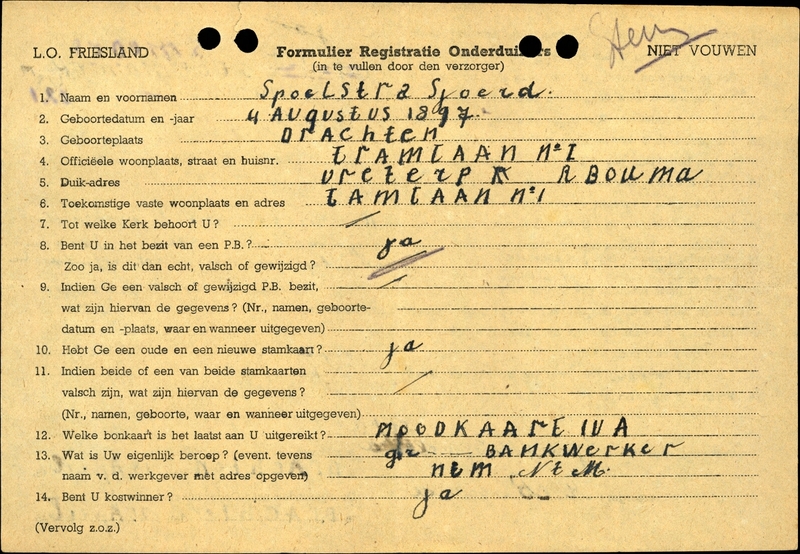 L.O. FRIESLAND Formulier Registratie Onderduikers NIET VOUWEN
(in te vullen door den verzorger)
1. Naam en voornamen Spoelstra Sjoerd.
2. Geboortedatum en -jaar 4 AUgUstUS 1897
3. Geboorteplaats DRAchtEN
4. Officiëele woonplaats, straat en huisnr. tRAMLAAN No 1
5. Duik-adres UretERP K R BOUMA
6. Toekomstige vaste woonplaats en adres tAMLAAN No 1
7. Tot welke Kerk behoort U? /
8. Bent U in het bezit van een P.B.? ja
Zoo ja, is dit dan echt, valsch of gewijzigd?
9. Indien Ge een valsch of gewijzigd P.B. bezit,
wat zijn hiervan de gegevens? (Nr., namen, geboorte-
datum en -plaats, waar en wanneer uitgegeven)
10. Hebt Ge een oude en een nieuwe stamkaart? ja
11. Indien beide of een van beide stamkaarten
valsch zijn, wat zijn hiervan de gegevens? /
(Nr., namen, geboorte, waar en wanneer uitgegeven)
12. Welke bonkaart is het laatst aan U uitgereikt? NOODKAARt IV A
13. Wat is Uw eigenlijk beroep? (event. tevens BANKWerKer
naam v. d. werkgever met adres opgeven) NtM N t M.
14. Bent U kostwinner? ja
(Vervolg z.o.z.)